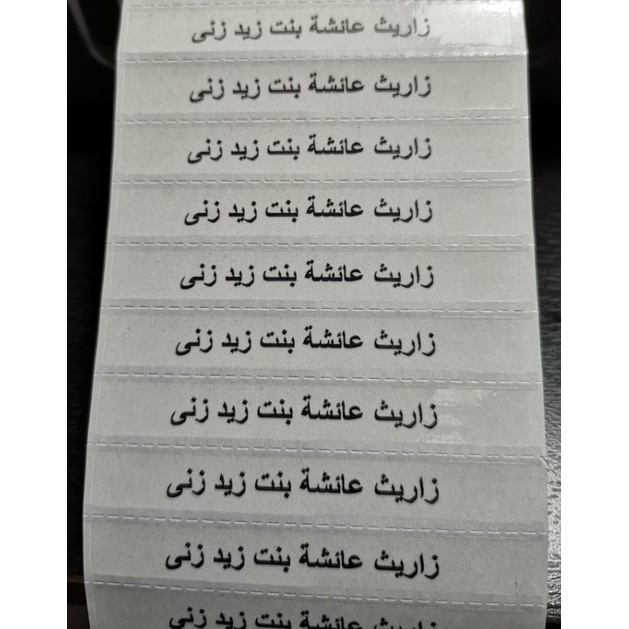 زاريث عائشة بنت زيد زنى
زاريث عائشة بنت زيد زنى
زاريث عائشة بنت زيد زنى
زاريث عائشة بنت زيد زنى
زاريث عائشة بنت زيد زنى
زاريث عائشة بنت زيد زنى
زاريث عائشة بنت زيد زنى
زاريث عائشة بنت زيد زنى
زاريث عائشة بنت زيد زنى
زاريث عائشة بنت زيد زنى